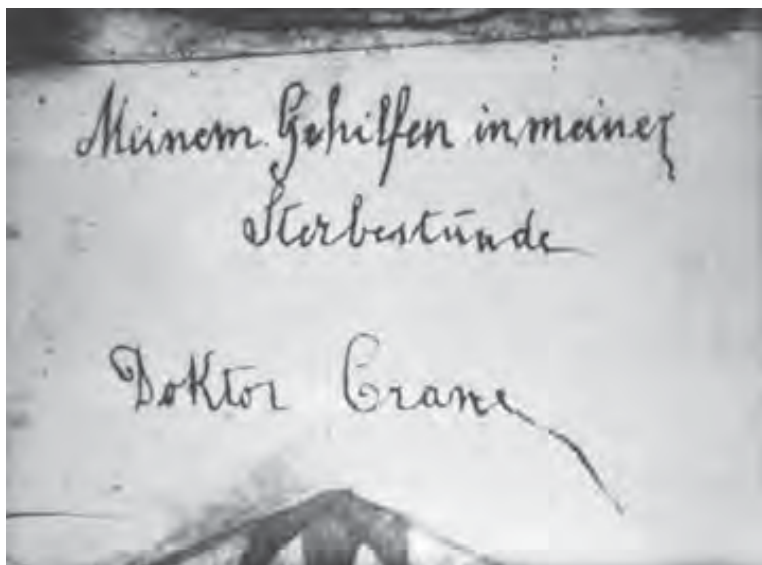 Meinem Gehilfen in meiner
Sterbestunde
Doktor Crane